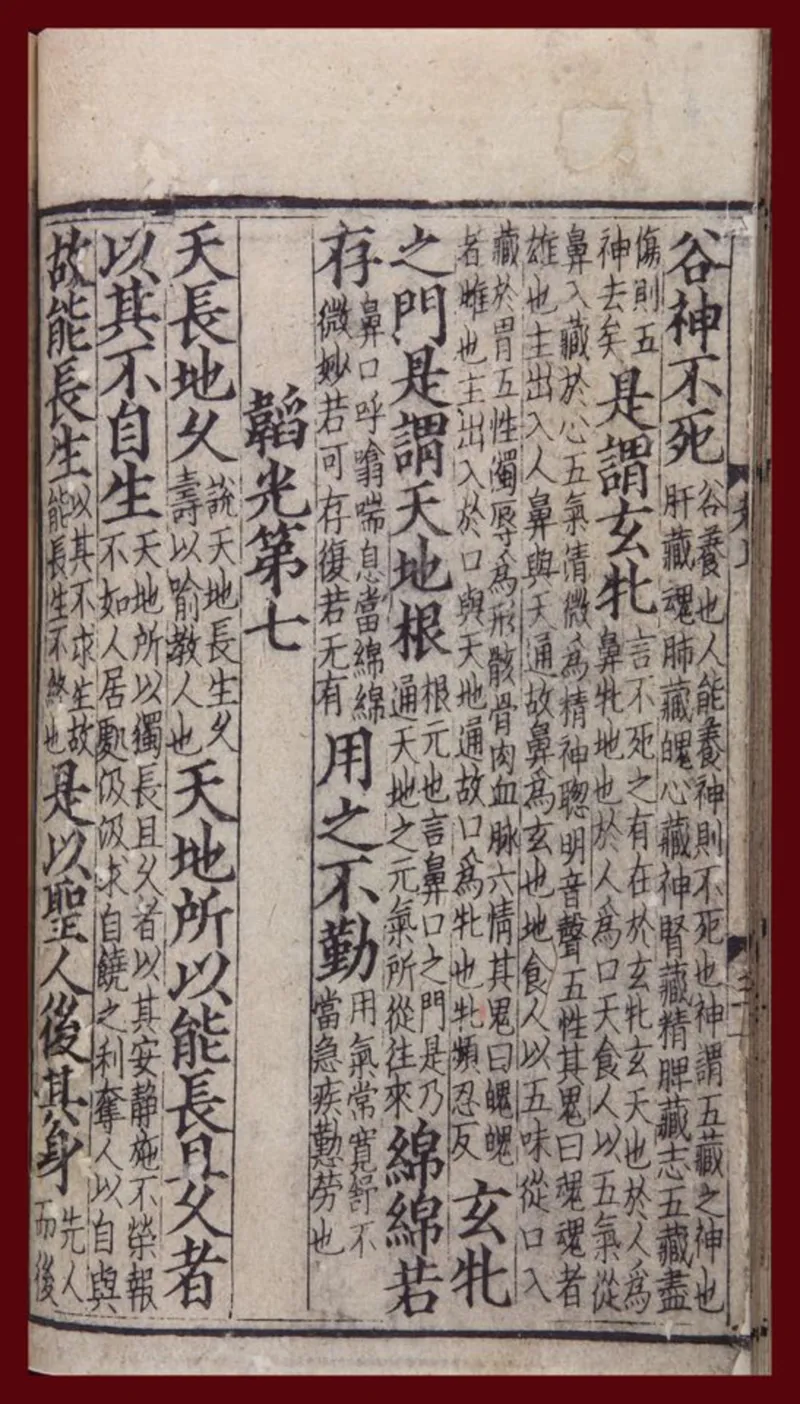 谷神不死谷養也人能養神則不死也神謂五藏之神也肝藏魂肺藏魄心藏神腎藏精脾藏志五藏盡
傷則五神去矣是謂玄牝言不死之有在於玄牝玄天也於人爲鼻牝地也於人爲口天食人以五氣從
鼻入藏於心五氣清微爲精神聦明音聲五性其鬼曰魂魂者雄也主出入人鼻與天通故鼻爲玄也地食人以五味從口入
藏於胃五性濁辱爲形骸骨肉血脉六情其鬼曰魄魄者雌也主出入於口與天地通故口爲牝也牝頻忍反玄牝
之門是謂天地根根元也言鼻口之門是乃通天地之元氣所從往來綿綿若
存鼻口呼噏喘息當綿綿微妙若可存復若无有用之不勤用氣常寬舒不當急疾懃勞也
韜光第七
天長地久說天地長生久壽以喻教人也天地所以能長且久者
以其不自生天地所以獨長且久者以其安静施不榮報不如人居處汲汲求自饒之利奪人以自與
故能長生以其不求生故能長生不終也是以聖人後其身先人而後